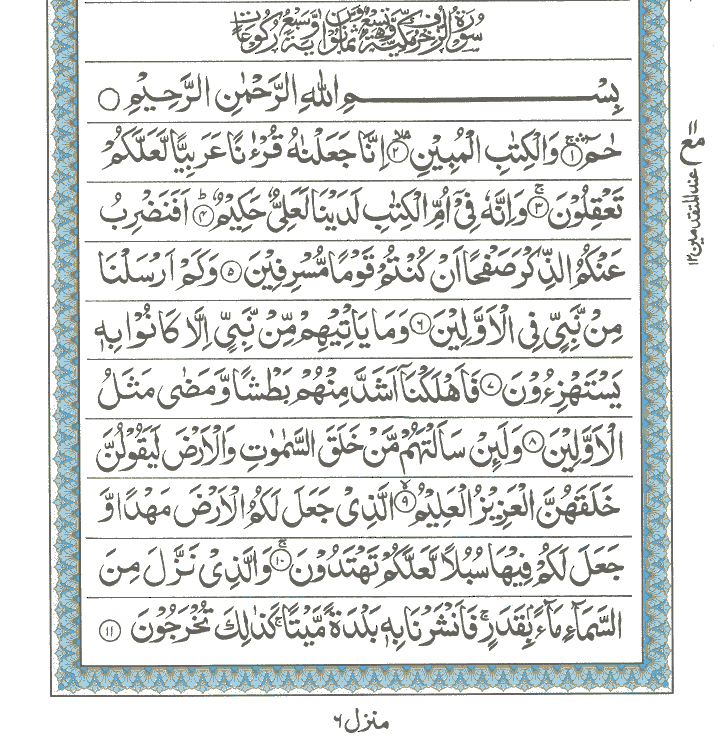 سورة الزخرف مكية وهي تسع وثمانون آية وسبع ركوعات
بِسْمِ اللهِ الرَّحْمٰنِ الرَّحِيْمِ ○
حٰمٓ ۚ‏﴿۱﴾ وَالْكِتٰبِ الْمُبِيْنِ ۙ‏﴿۲﴾ اِنَّا جَعَلْنٰهُ قُرْءٰنًا عَرَبِيًّا لَّعَلَّكُمْ
تَعْقِلُوْنَ ۚ‏﴿۳﴾ وَاِنَّهٗ فِىْۤ اُمِّ الْكِتٰبِ لَدَيْنَا لَعَلِىٌّ حَكِيْمٌ ؕ‏﴿۴﴾ اَفَنَضْرِبُ
عَنْكُمُ الذِّكْرَ صَفْحًا اَنْ كُنْتُمْ قَوْمًا مُّسْرِفِيْنَ ﴿۵﴾ وَكَمْ اَرْسَلْنَا
مِنْ نَّبِىٍّ فِى الْاَوَّلِيْنَ ﴿۶﴾ وَمَا يَاْتِيْهِمْ مِّنْ نَّبِىٍّ اِلَّا كَانُوْا بِهٖ
يَسْتَهْزِءُوْنَ ﴿۷﴾ فَاَهْلَكْنَاۤ اَشَدَّ مِنْهُمْ بَطْشًا وَّمَضٰى مَثَلُ
الْاَوَّلِيْنَ ﴿۸﴾ وَلَئِنْ سَاَلْتَهُمْ مَّنْ خَلَقَ السَّمٰوٰتِ وَالْاَرْضَ لَيَقُوْلُنَّ
خَلَقَهُنَّ الْعَزِيْزُ الْعَلِيْمُ ۙ‏﴿۹﴾ الَّذِىْ جَعَلَ لَكُمُ الْاَرْضَ مَهْدًا وَّ
جَعَلَ لَكُمْ فِيْهَا سُبُلًا لَّعَلَّكُمْ تَهْتَدُوْنَ ۚ‏﴿۱۰﴾ وَالَّذِىْ نَزَّلَ مِنَ
السَّمَآءِ مَآءًۢ بِقَدَرٍ ۚ فَاَنْشَرْنَا بِهٖ بَلْدَةً مَّيْتًا ۚ كَذٰلِكَ تُخْرَجُوْنَ ﴿۱۱﴾
مع عند المتقدمين ۱۲
منزل ۶